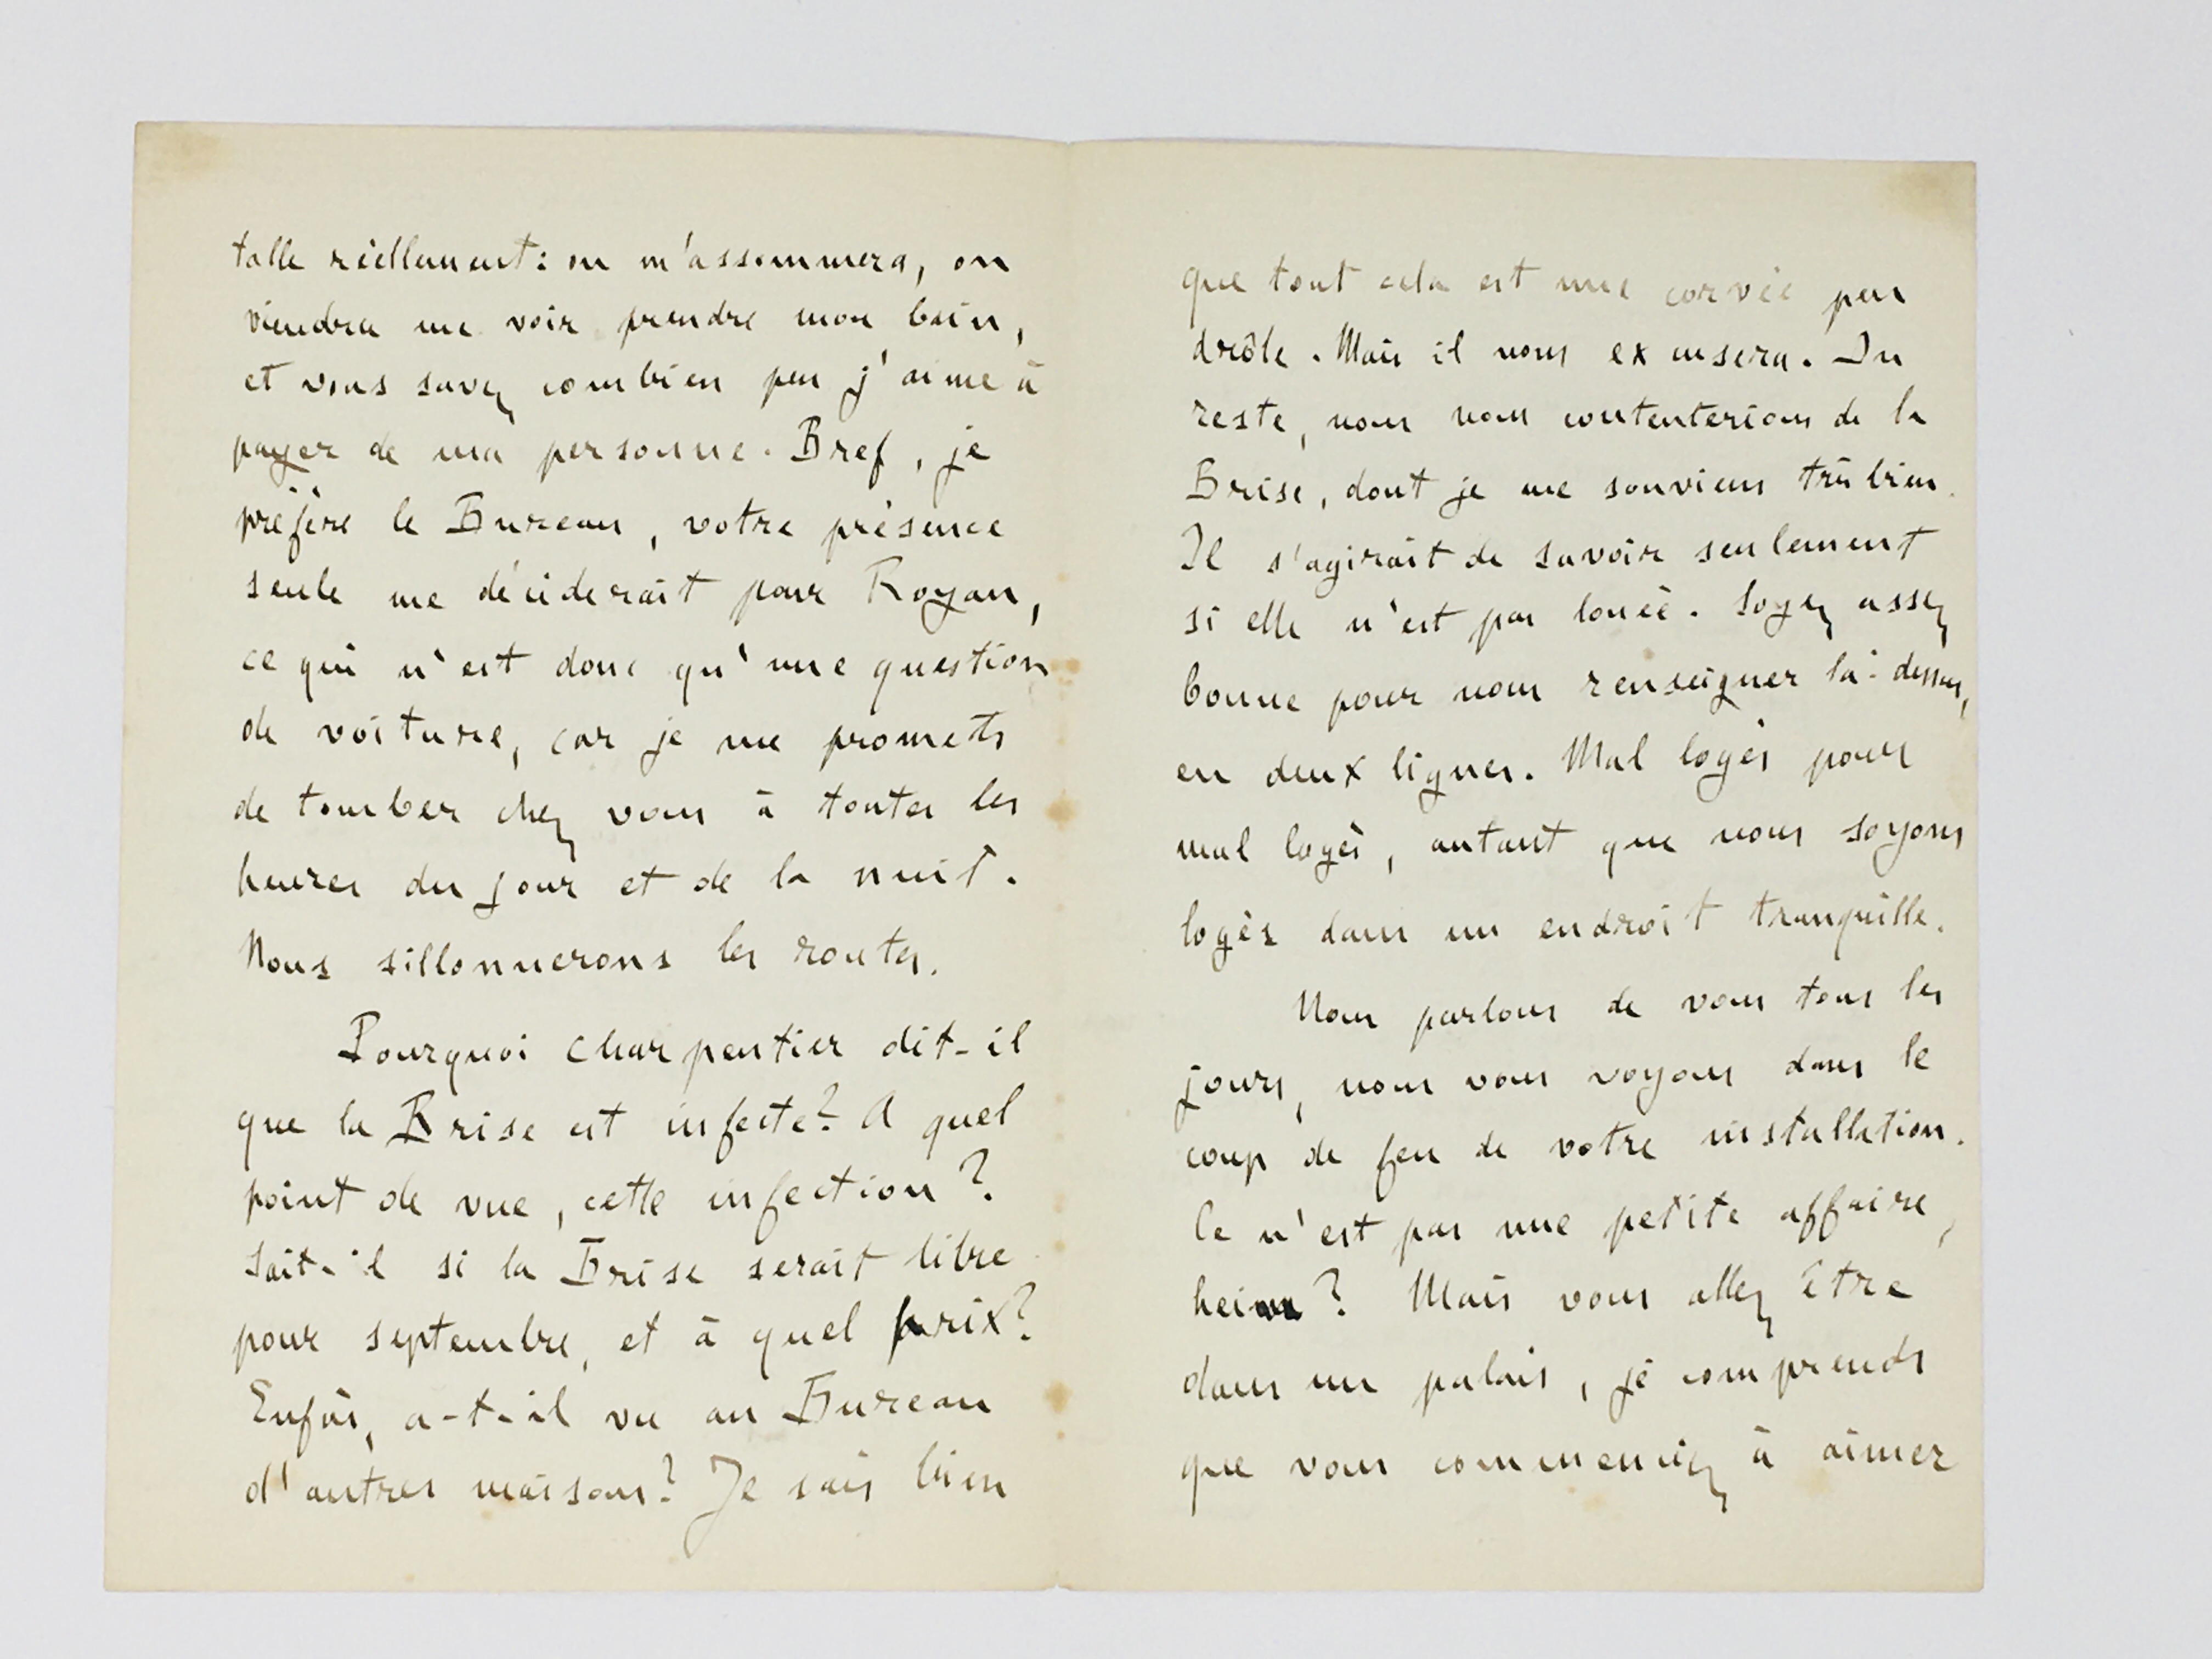 talle réellement : on m'assommera, on
viendra me voir prendre mon bain,
et vous savez combien peu j'aime à
payer de ma personne. Bref, je
préfère le Bureau, votre présence
seule me déciderait pour Royan,
ce qui n'est donc qu'une question
de voiture, car je me promets
de tomber chez vous à toutes les
heures du jour et de la nuit.
Nous sillonnerons les routes.
Pourquoi Charpentier dit-il
que la Brise est infecte? A quel
point de vue, cette infection?
Sait-il si la Brise serait libre
pour septembre, et à quel prix?
Enfin, a-t-il vu au Bureau
d'autres maisons? Je sais bien
que tout cela est une corvée peu
drôle. Mais il nous excusera. Du
reste, nous nous contenterions de la
Brise, dont je me souviens très bien.
Il s'agirait de savoir seulement
si elle n'est pas louée. Soyez assez
bonne pour nous renseigner là-dessus,
en deux lignes. Mal logés pour
mal logés, autant que nous soyons
logés dans un endroit tranquille.
Nous parlons de vous tous les
jours, nous vous voyons dans le
coup de feu de votre installation.
Ce n'est pas une petite affaire,
hein? Mais vous allez être
dans un palais, je comprends
que vous commenciez à aimer